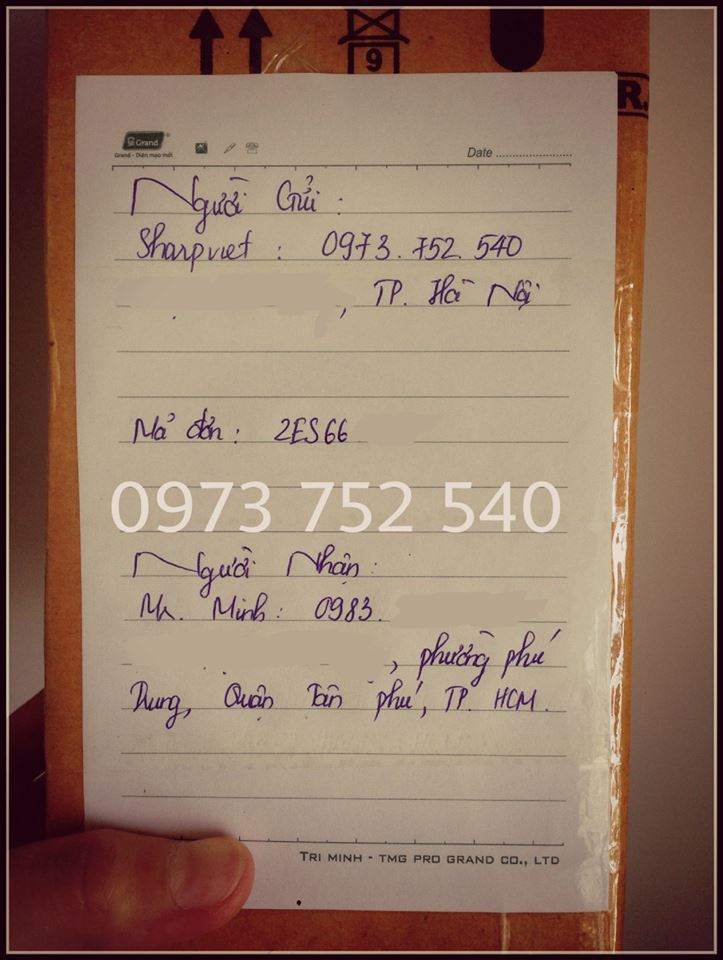 9
R.
Grand®
Grand - Diện mạo mới
Date ....................
Người Gửi :
Sharpviet : 0973.752.540
, TP. Hà Nội
Mã đơn : 2ES66
0973 752 540
Người Nhận :
Mr. Minh : 0983.
, phường phú
Trung, Quận Tân phú, TP. HCM.
TRI MINH - TMG PRO GRAND CO., LTD